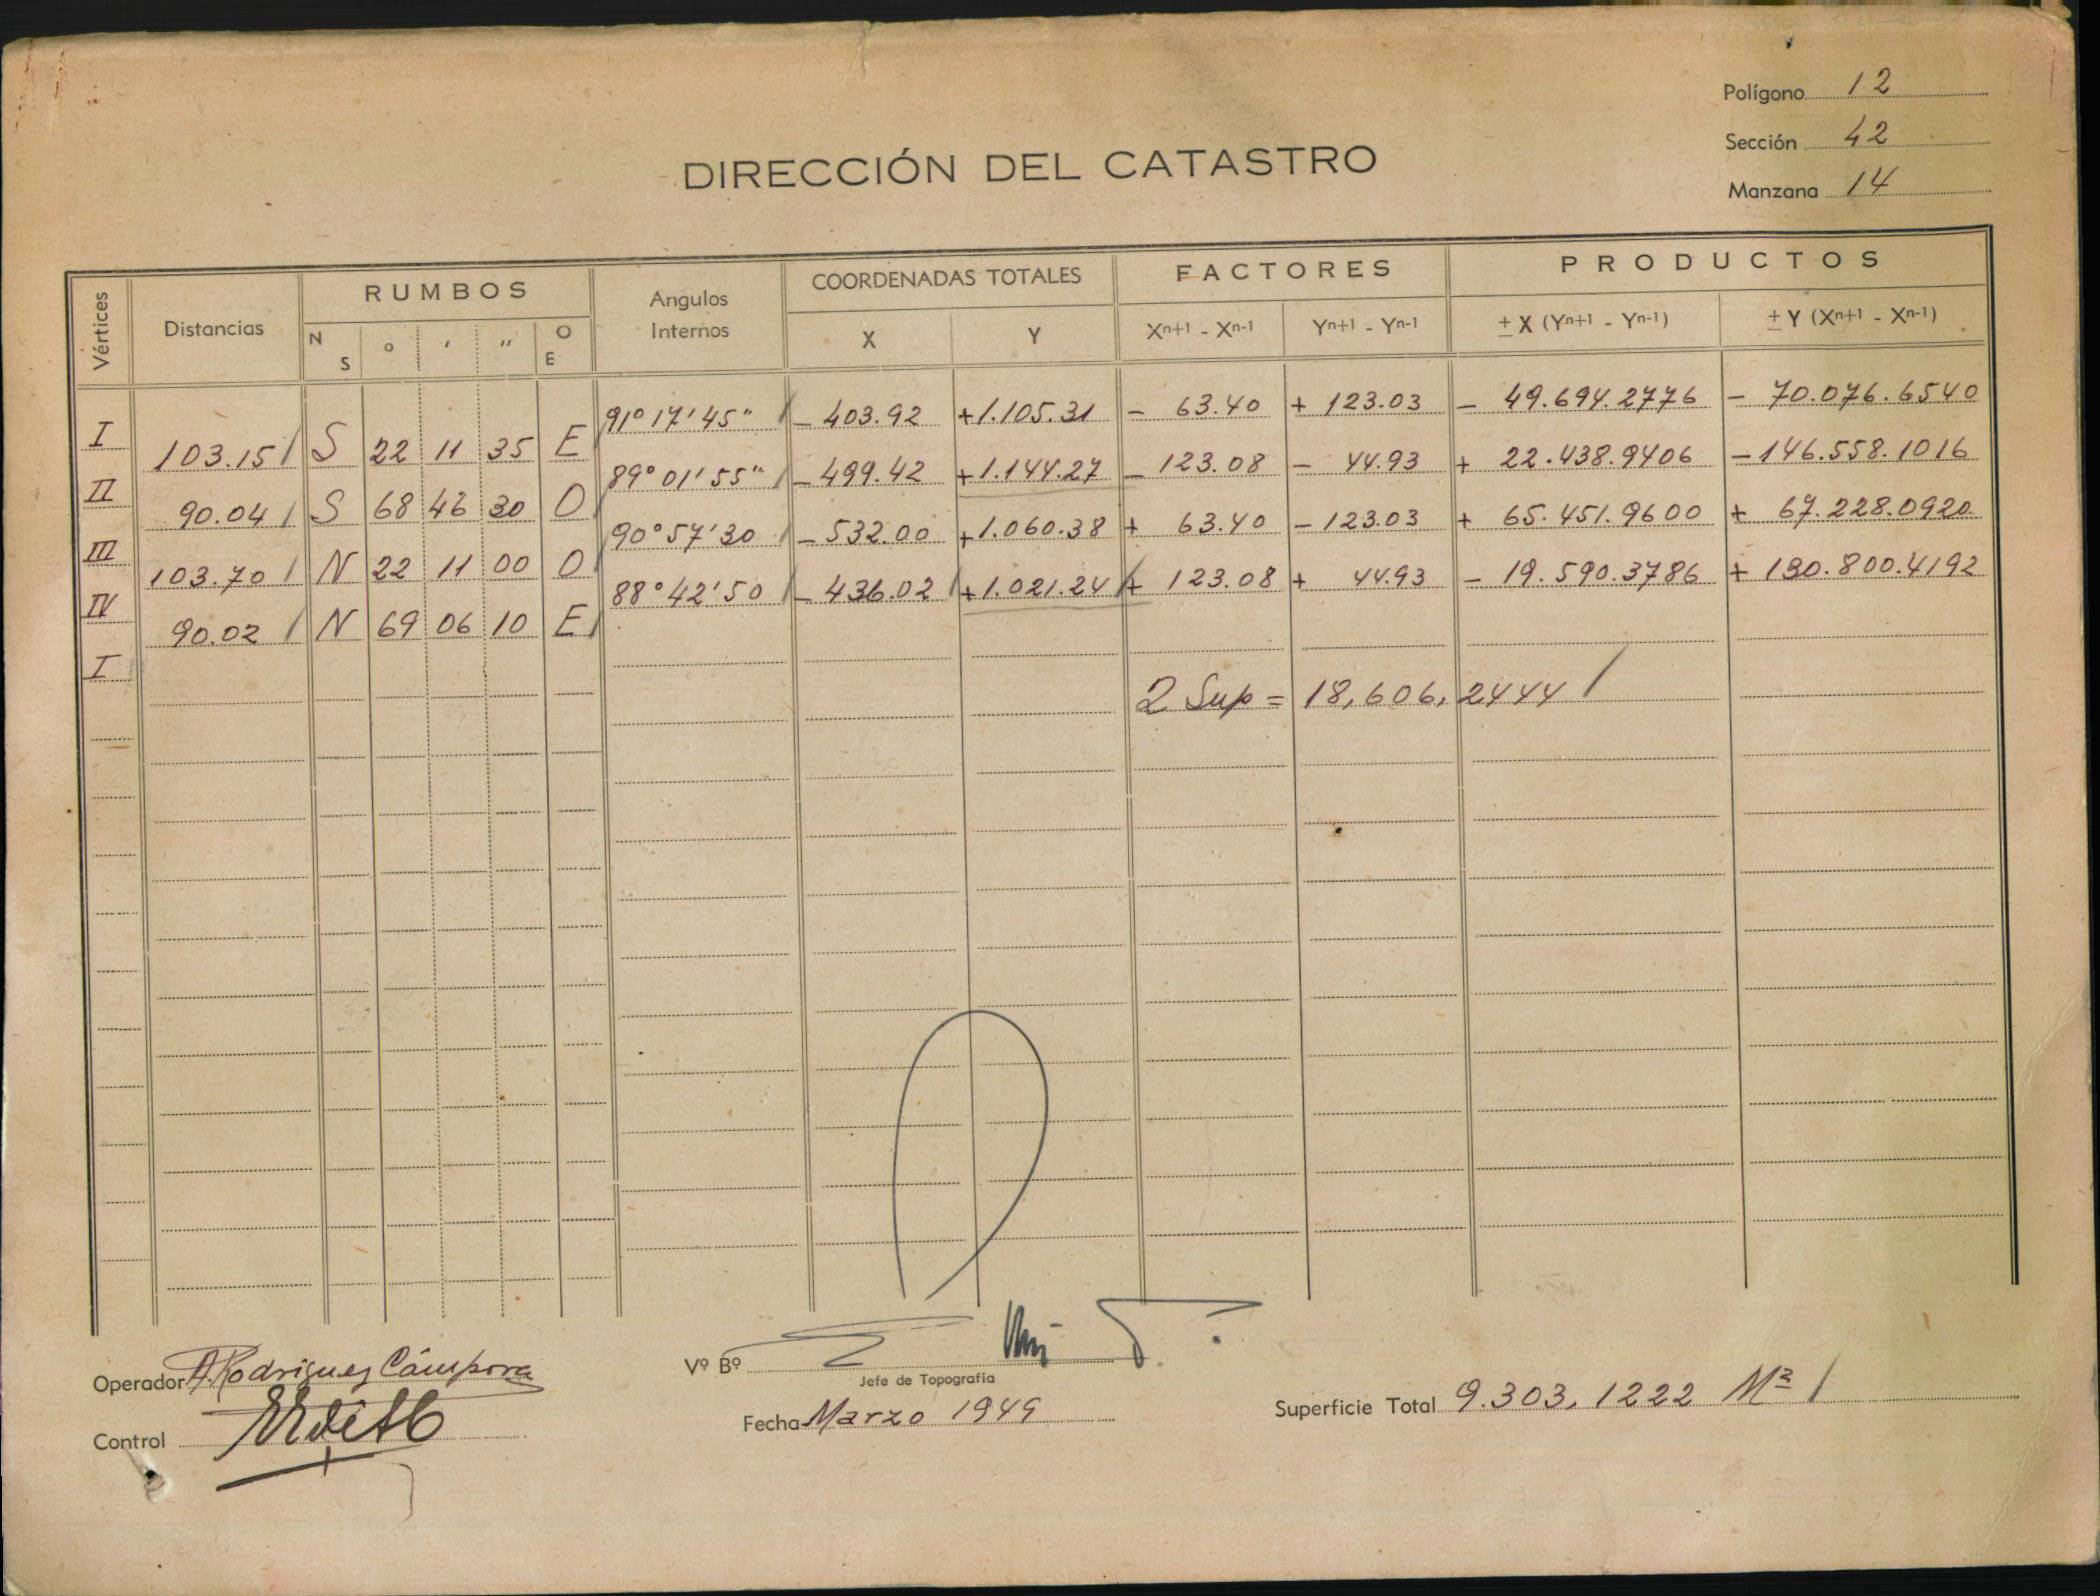 Polígono 12
Sección 42
Manzana 14
DIRECCIÓN DEL CATASTRO
Vértices Distancias RUMBOS Angulos Internos COORDENADAS TOTALES FACTORES PRODUCTOS
N S o ' " O E X Y Xn+1 - Xn-1 Yn+1 - Yn-1 ± X (Yn+1 - Yn-1) ± Y (Xn+1 - Xn-1)
I 91° 17' 45" - 403.92 +1.105.31 - 63.40 + 123.03 - 49.694.2776 - 70.076.6540
103.15 S 22 11 35 E
II 89° 01' 55" - 499.42 +1.144.27 - 123.08 - 44.93 + 22.438.9406 - 146.558.1016
90.04 S 68 46 30 O
III 90° 57' 30 - 532.00 +1.060.38 + 63.40 - 123.03 + 65.451.9600 + 67.228.0920
103.70 N 22 11 00 O
IV 88° 42' 50 - 436.02 +1.021.24 + 123.08 + 44.93 - 19.590.3786 + 130.800.4192
90.02 N 69 06 10 E
I
2 Sup = 18,606,2444
Operador A. Rodriguez Cámpora
Vº Bº
Jefe de Topografía
Control
Fecha Marzo 1949
Superficie Total 9.303,1222 M2